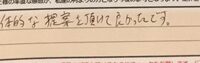 体的な提案を頂けて良かったです。